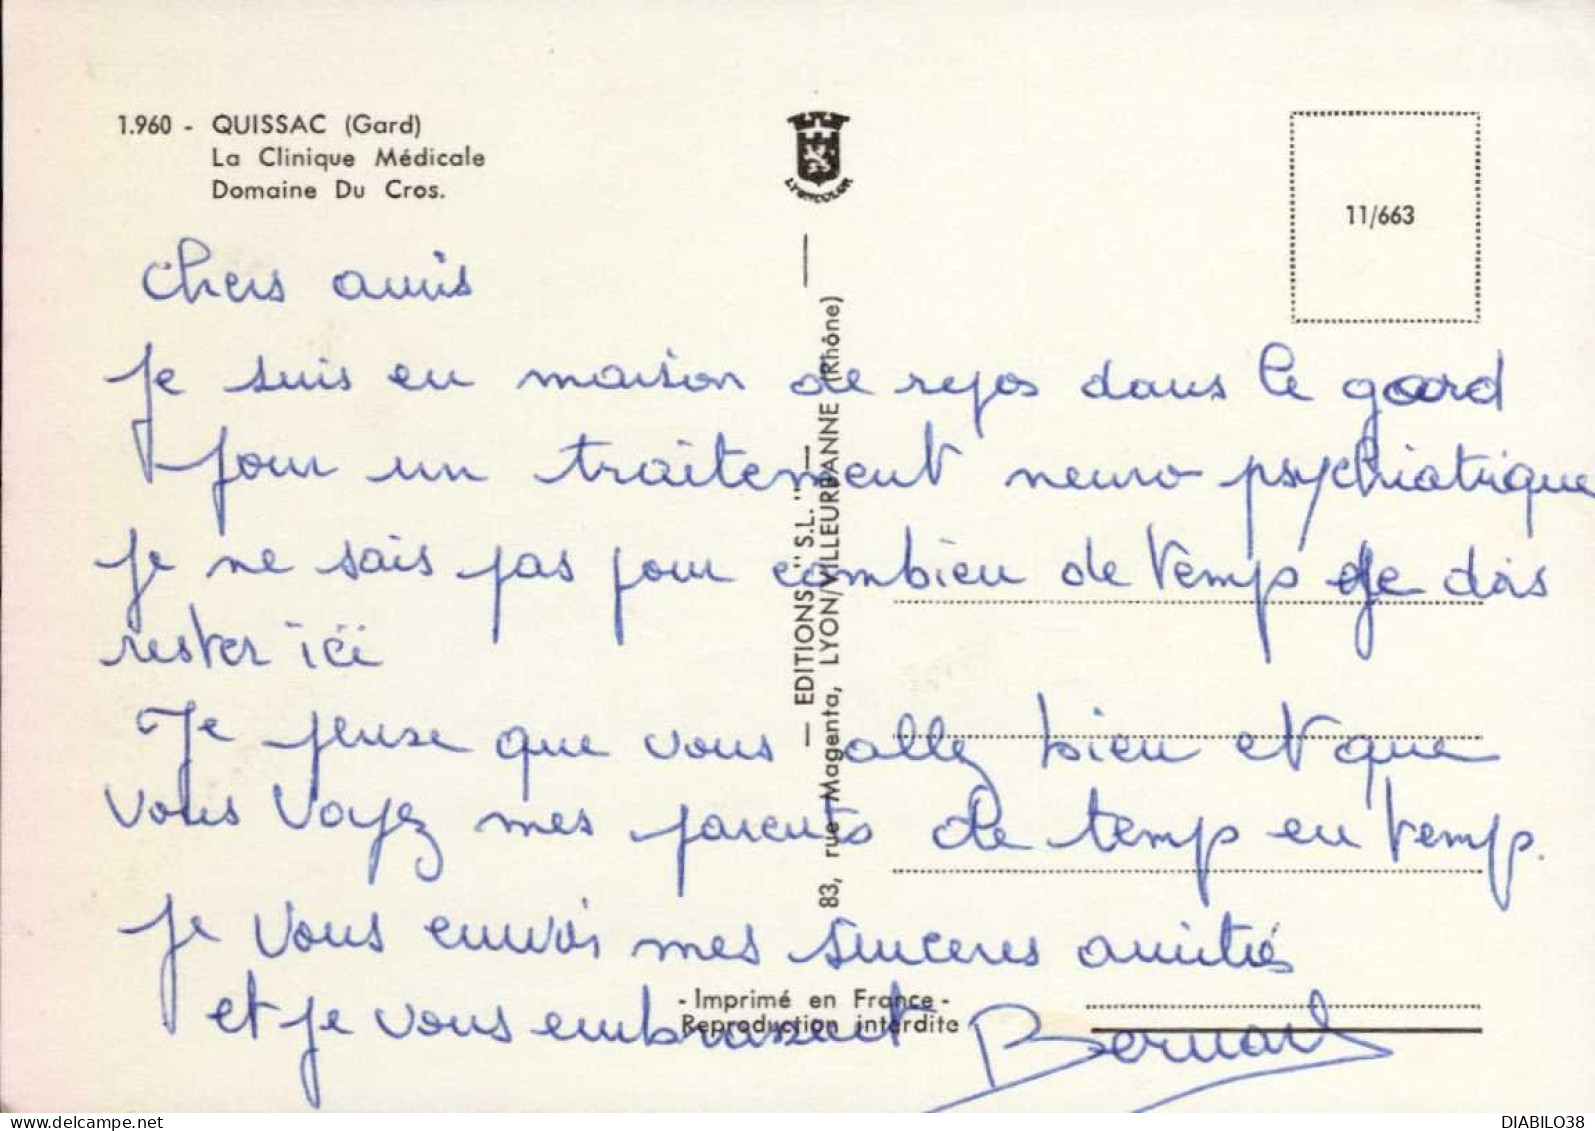 1.960 - QUISSAC (Gard)
La Clinique Médicale
Domaine Du Cros.
LYONCOLOR
11/663
— EDITIONS "S.L." —
83, rue Magenta, LYON/VILLEURBANNE (Rhône)
chers amis
Je suis en maison de repos dans le gard
pour un traitement neuro psychiatrique
je ne sais pas pour combien de temp je dois
rester ici
Je pense que vous allez bien et que
vous voyez mes parents de temp en temp.
je vous envoi mes sinceres amitiés
et je vous embrassent Bernard
- Imprimé en France -
Reproduction interdite
DIABILO38